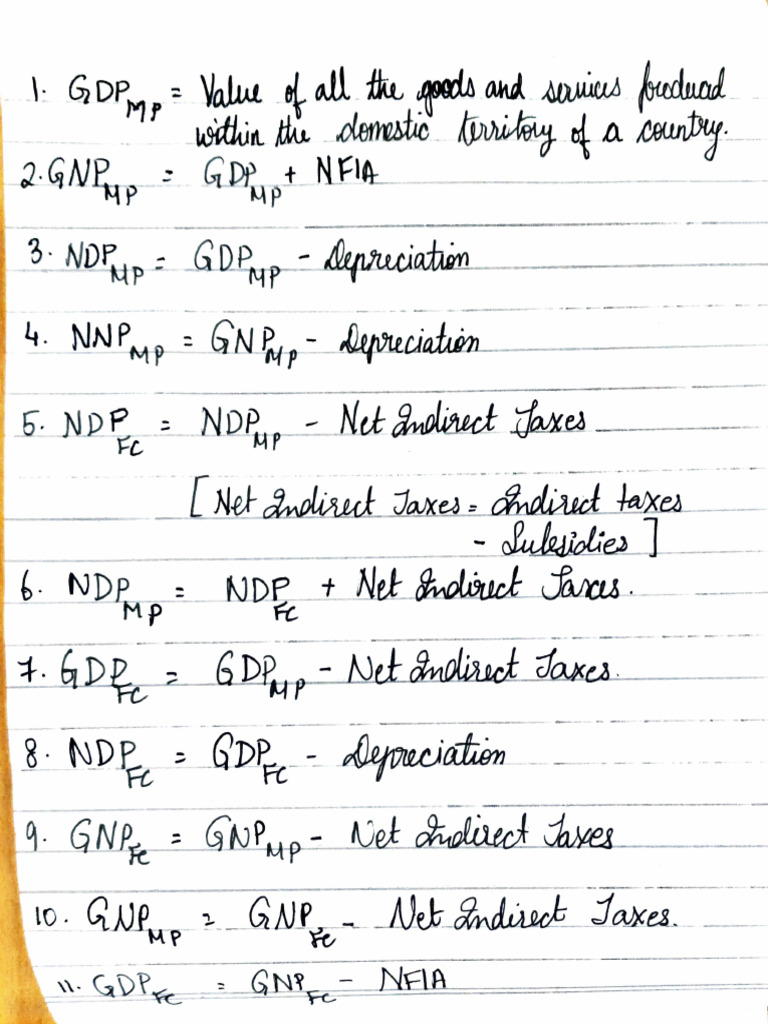 1. GDP MP = Value of all the goods and services produced
within the domestic territory of a country.
2. GNP MP = GDP MP + NFIA
3. NDP MP = GDP MP - Depreciation
4. NNP MP = GNP MP - Depreciation
5. NDP FC = NDP MP - Net Indirect Taxes
[Net Indirect Taxes = Indirect taxes
- Subsidies]
6. NDP MP = NDP FC + Net Indirect Taxes.
7. GDP FC = GDP MP - Net Indirect Taxes.
8. NDP FC = GDP FC - Depreciation
9. GNP FC = GNP MP - Net Indirect Taxes
10. GNP MP = GNP FC - Net Indirect Taxes.
11. GDP FC = GNP FC - NFIA